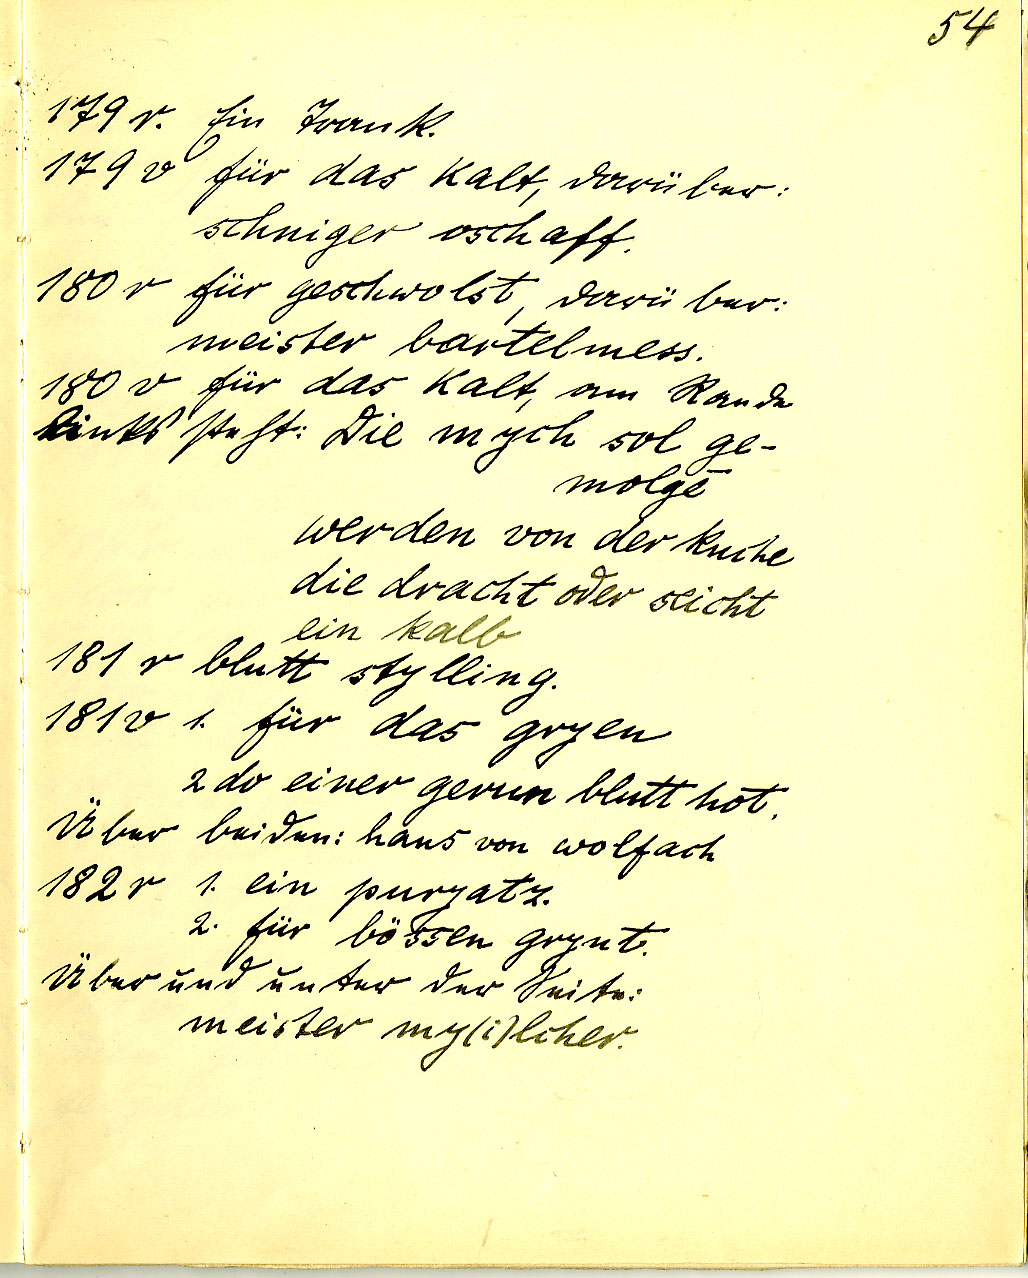 54
179 r. Ein Trank.
179 v für das Kalt, darüber:
schniger oschaff.
180 r für geschwolst, darüber:
meister bartelmess.
180 v für das Kalt, am Rande
links steht: Die mych sol ge-
molgē
werden von der kuche
die dracht oder seicht
ein kalb
181 r blutt stylling.
181 v 1. für das gryen
2 do einer gerun blutt hot.
Über beiden: hans von wolfach
182 r 1. ein purgatz.
2. für bössen grynt.
Über und unter der Seite:
meister my(i)lcher.